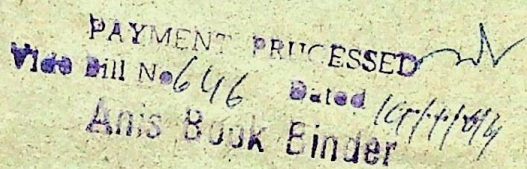 PAYMENT PROCESSED
Vide Bill No 646 Dated
Anis Book Binder